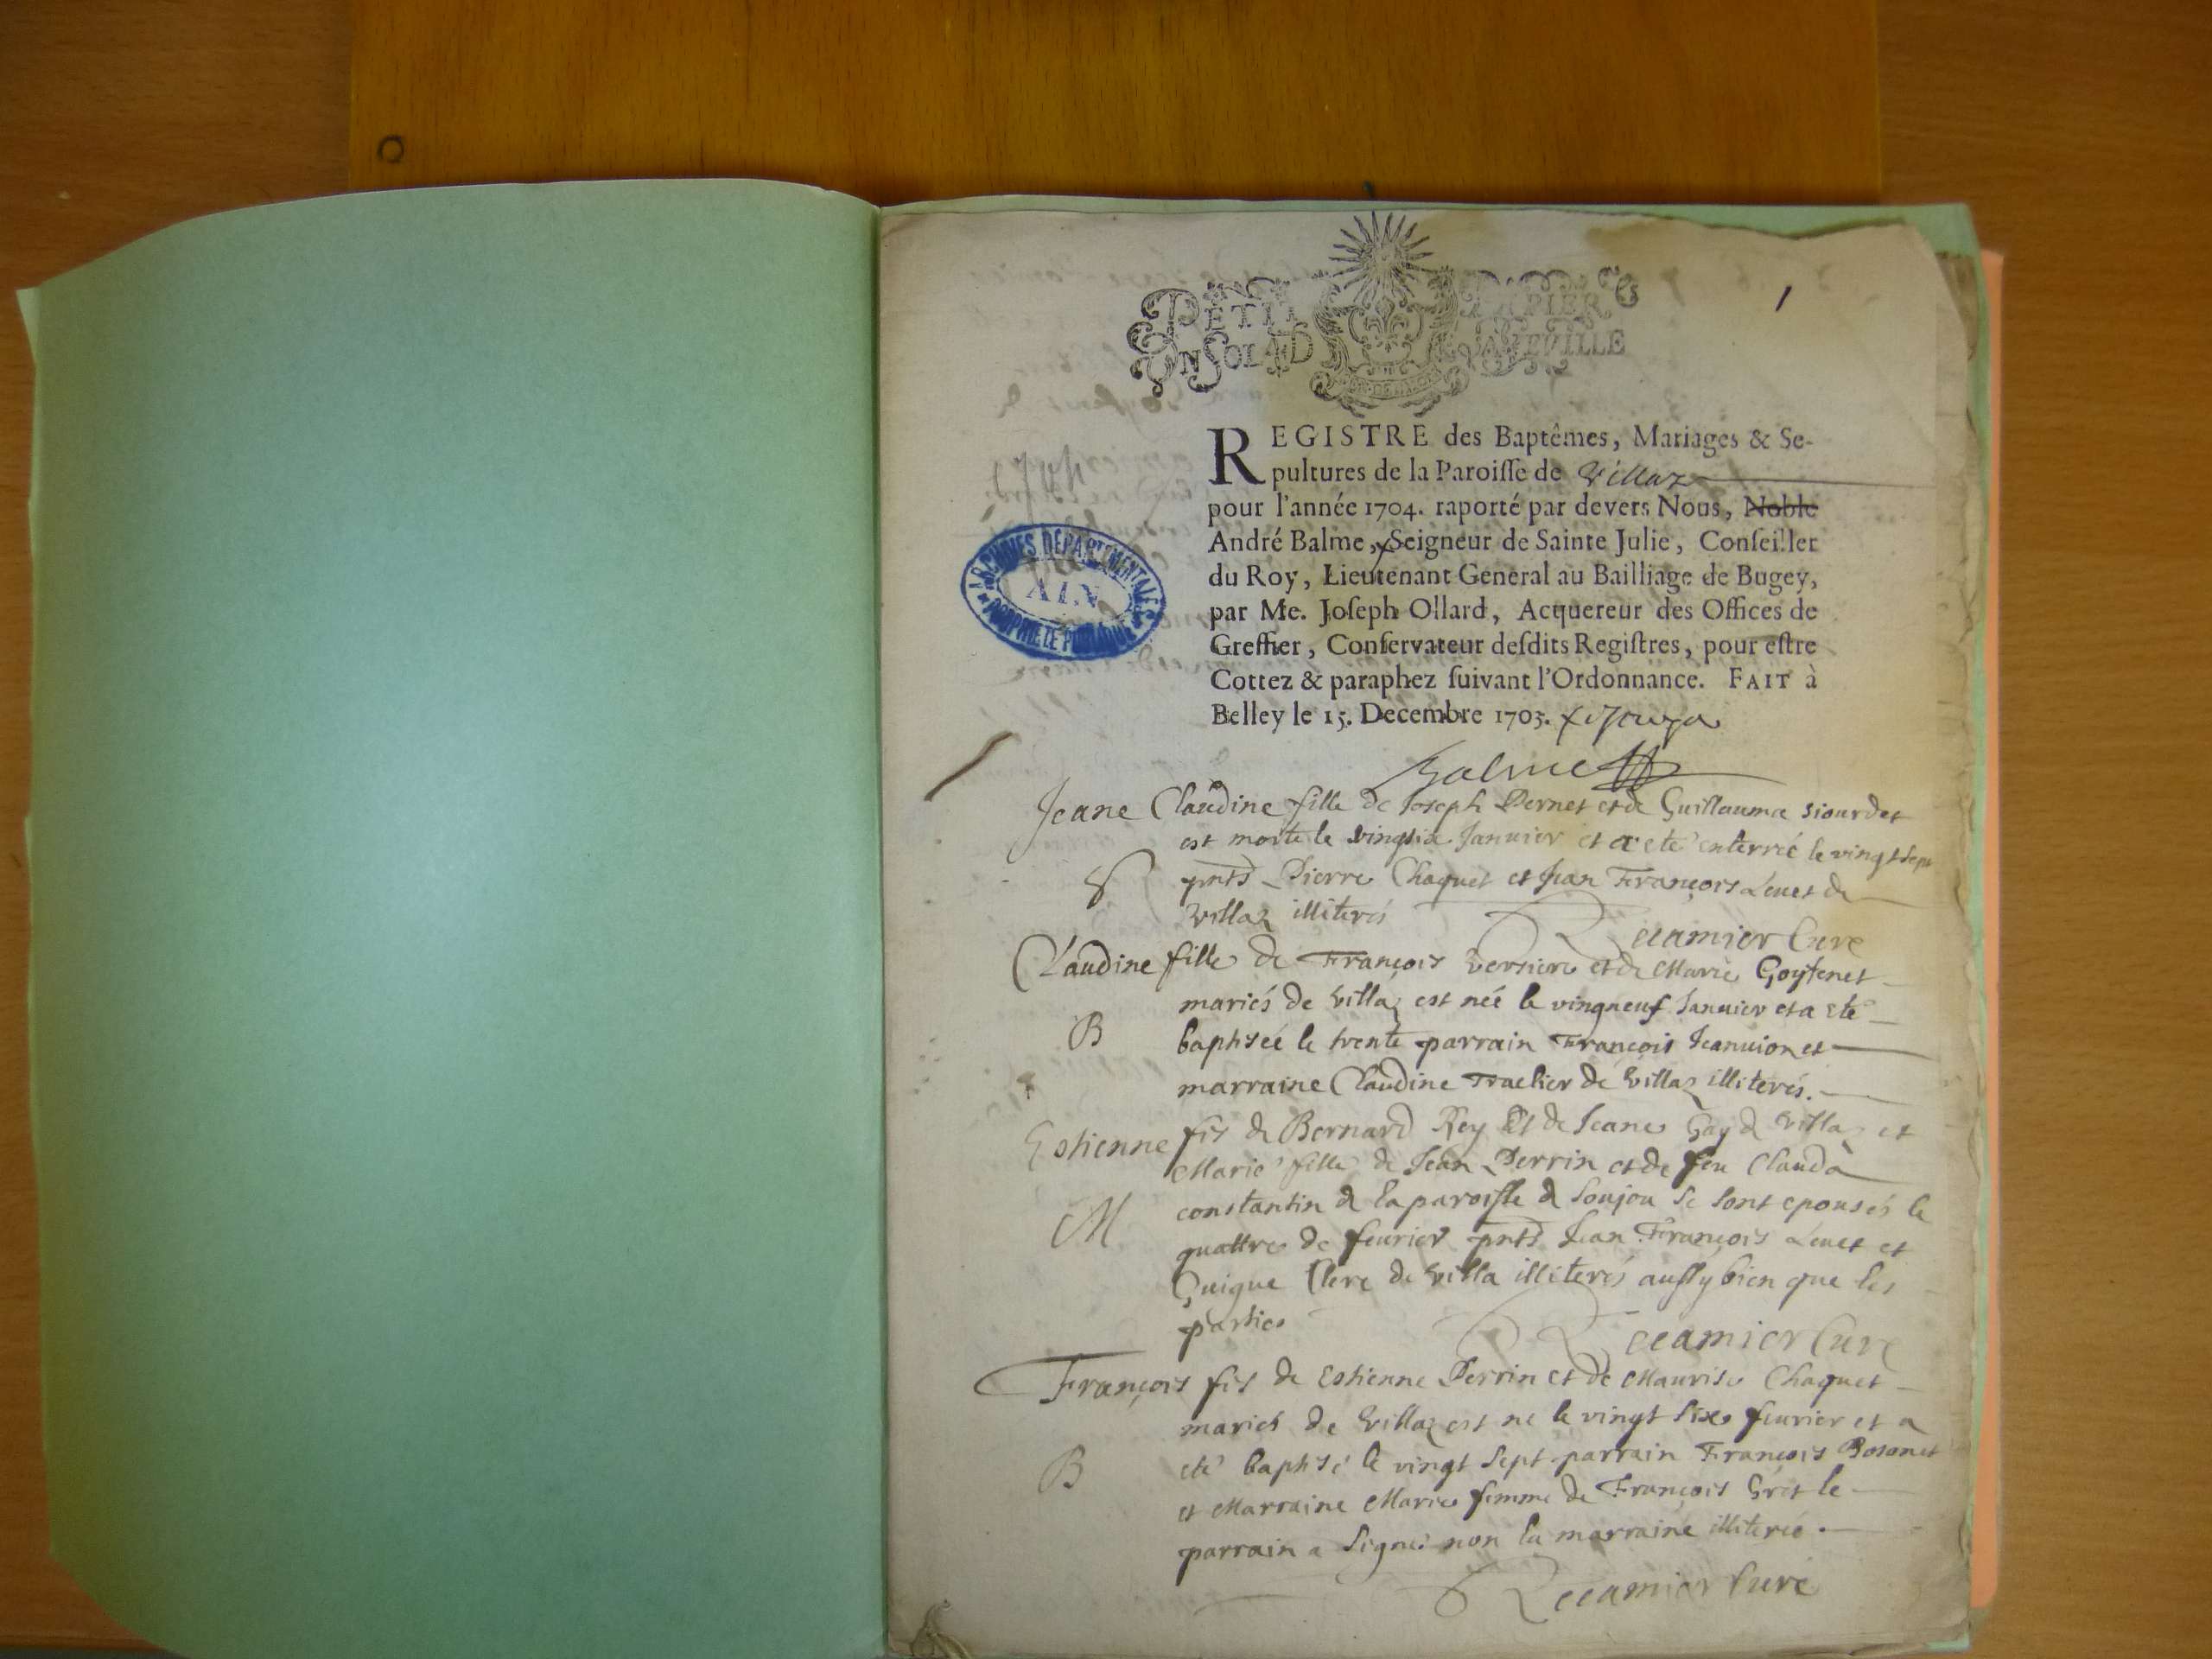 1
PETIT PAPIER
UN SOL 4 D LA FEUILLE
REGISTRE des Baptêmes, Mariages & Se-
pultures de la Paroiſſe de Villaz
pour l'année 1704. raporté par devers Nous, Noble
André Balme, Seigneur de Sainte Julie, Conſeiller
du Roy, Lieutenant General au Bailliage de Bugey,
par Me. Joſeph Ollard, Acquereur des Offices de
Greffier, Conſervateur deſdits Regiſtres, pour eſtre
Cottez & paraphez ſuivant l'Ordonnance. FAIT à
Belley le 15. Decembre 1703.
Balme
ARCHIVES DEPARTEMENTALES
AIN
PROPRIETE PUBLIQUE
Jeane Claudine fille de Joseph Pernet et de Guillauma Siourdet
est morte le vingtsix Januier et a eté enterrée le vingt sept
S pnts Pierre Chaquet et Jean François Leuet de
Villaz illiterés
Recamier Curé
Claudine fille de François Versiere et de Marie Goyfenet
mariés de Villaz est née le vingneuf Januier et a eté
B baptisée le trente parrain François Jeanuion et
marraine Claudine Traclier de Villaz illiterés.
Estienne fis de Bernard Rey Et de Jeane Gay de Villaz et
Marie fille de Jean Perrin et de feu Clauda
constantin de la paroisse de Soujou se sont epousés le
M quattre de feurier pnts Jean François Leuet et
Guigue Clerc de Villa illiterés aussy bien que les
parties
Recamier Curé
François fis de Estienne Perrin et de Maurise Chaquet
mariés de Villaz est né le vingt six feurier et a
B eté baptisé le vingt sept parrain François Bosonet
et Marraine Marie femme de François Gret le
parrain a signé non la marraine illiterée.
Recamier Curé